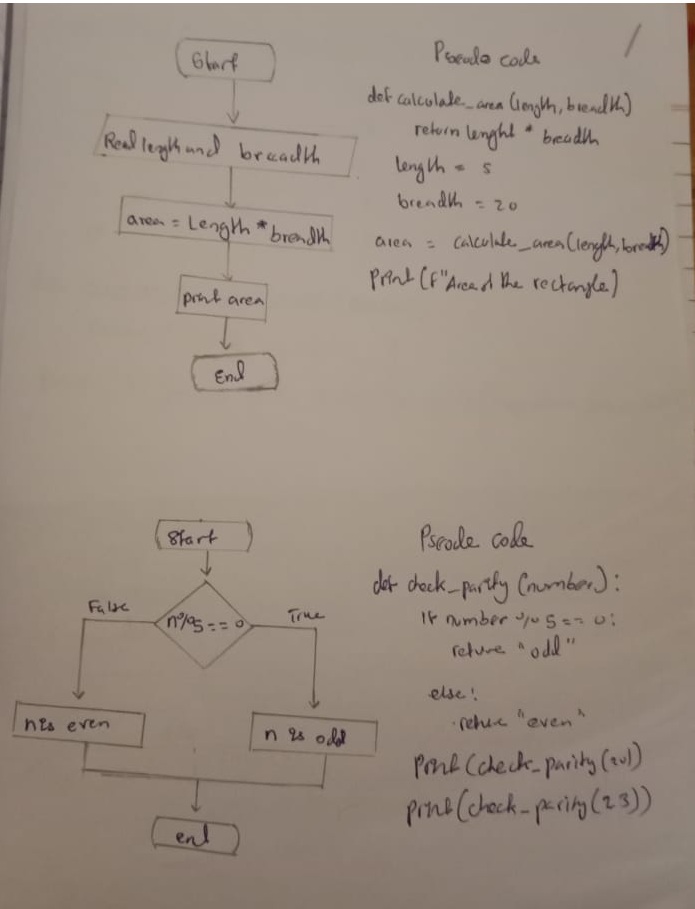 Start
Read length and breadth
area = Length * breadth
print area
End
Pseudo code
def calculate_area (length, breadth)
return lenght * breadth
length = 5
breadth = 20
area = calculate_area (length, breadth)
Print (f"Area of the rectangle)
Start
n%5 == 0
False
True
n is even
n is odd
end
Pseode code
def check_parity (number):
if number % 5 == 0:
return "odd"
else:
return "even"
Print (check_parity (201)
print (check_parity (23))